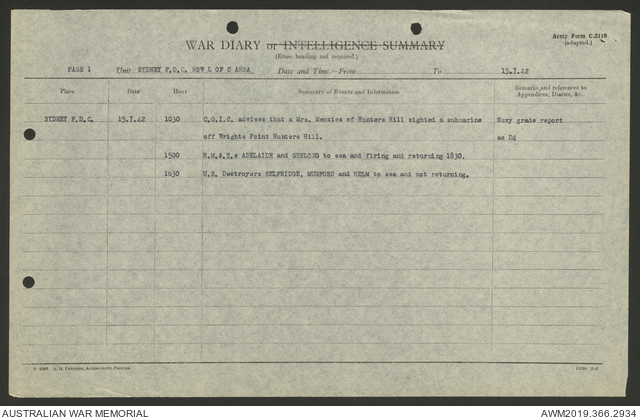 Army Form C.2118
(adapted.)
WAR DIARY or INTELLIGENCE SUMMARY
(Erase heading not required.)
PAGE 1 Unit SYDNEY F.D.C. NSW L OF C AREA Date and Time.—From To 15.7.42
Place Date Hour Summary of Events and Information Remarks and references to Appendices, Diaries, &c.
SYDNEY F.D.C. 15.7.42 1030 C.O.I.C. advises that a Mrs. Menzies of Hunters Hill sighted a submarine Navy grade report
off Wrights Point Hunters Hill. as D4
1500 H.M.A.S.s ADELAIDE and GEELONG to sea and firing and returning 1830.
1630 U.S. Destroyers SELFRIDGE, MUGFORD and HELM to sea and not returning.
A. H. Pettifer, Acting Govt. Printer
AUSTRALIAN WAR MEMORIAL AWM2019.366.2934